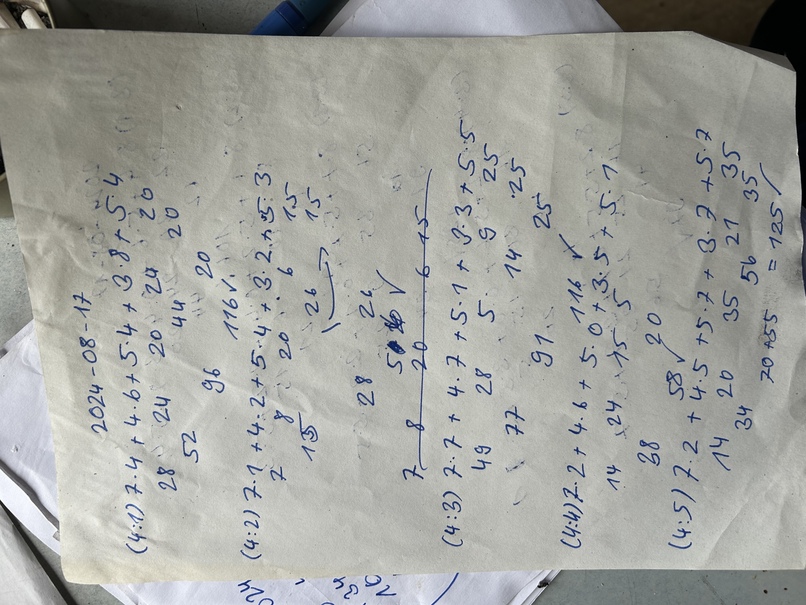 2024-08-17
(4:1) 7·4 + 4·6 + 5·4 + 3·8 + 5·4
28 24 20 24 20
52 44 20
96 20
116 ✓
(4:2) 7·1 + 4·2 + 5·4 + 3·2 + 5·3
7 8 20 6 15
15 26 15
28 26
✓
7 8 20 6 15
(4:3) 7·7 + 4·7 + 5·1 + 3·3 + 5·5
49 28 5 9 25
77 14 25
91 25
116 ✓
(4:4) 7·2 + 4·6 + 5·0 + 3·5 + 5·1
14 24 15 5
38 20
58 ✓
(4:5) 7·2 + 4·5 + 5·7 + 3·7 + 5·7
14 20 35 21 35
34 56 35
70+55 = 125 ✓